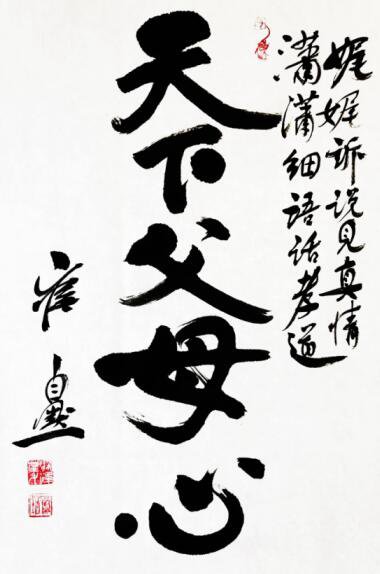 娓娓诉说见真情
潇潇细语话孝道
天下父母心
崔自默